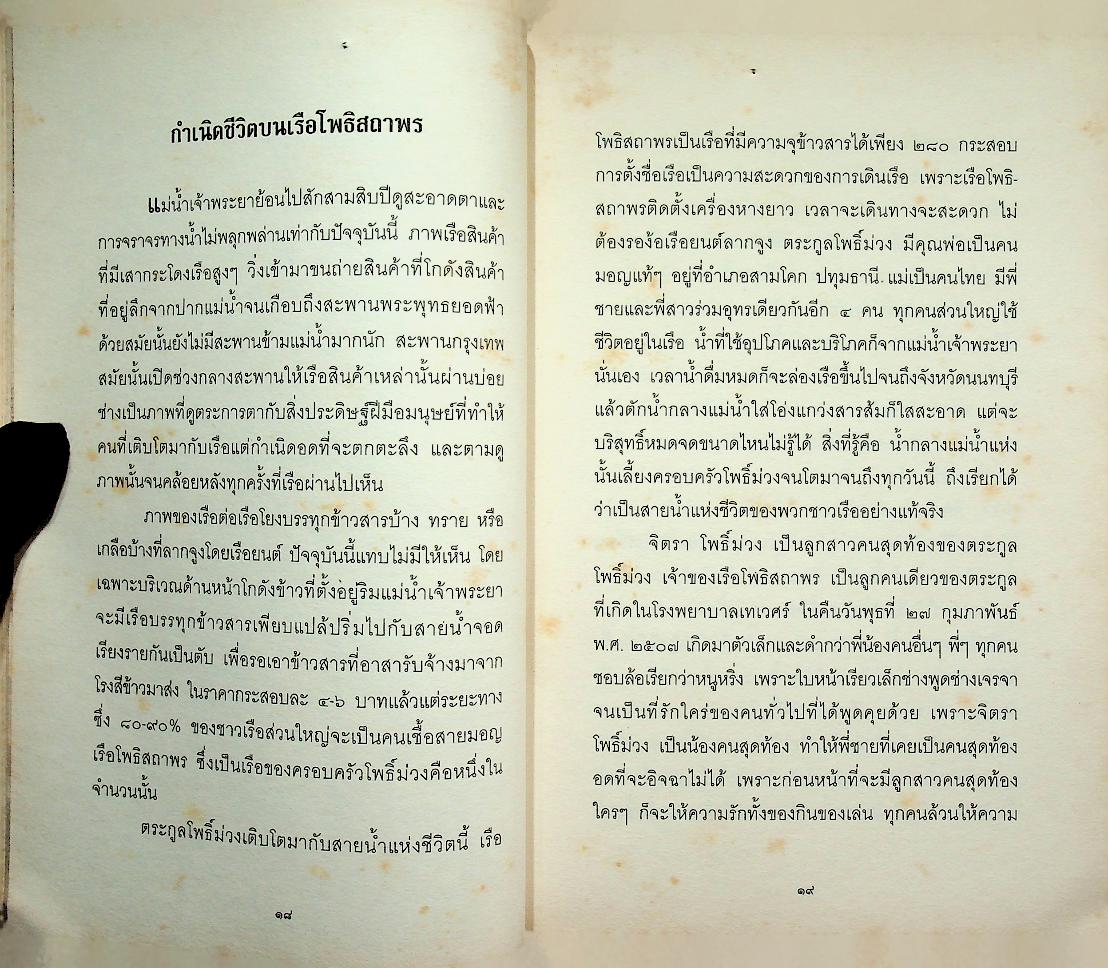 กำเนิดชีวิตบนเรือโพธิสถาพร
แม่น้ำเจ้าพระยาย้อนไปสักสามสิบปีดูสะอาดตาและ
การจราจรทางน้ำไม่พลุกพล่านเท่ากับปัจจุบันนี้ ภาพเรือสินค้า
ที่มีเสากระโดงเรือสูงๆ วิ่งเข้ามาขนถ่ายสินค้าที่โกดังสินค้า
ที่อยู่ลึกจากปากแม่น้ำจนเกือบถึงสะพานพระพุทธยอดฟ้า
ด้วยสมัยนั้นยังไม่มีสะพานข้ามแม่น้ำมากนัก สะพานกรุงเทพ
สมัยนั้นเปิดช่วงกลางสะพานให้เรือสินค้าเหล่านั้นผ่านบ่อย
ช่างเป็นภาพที่ดูตระการตากับสิ่งประดิษฐ์ฝีมือมนุษย์ที่ทำให้
คนที่เติบโตมากับเรือแต่กำเนิดอดที่จะตกตะลึง และตามดู
ภาพนั้นจนคล้อยหลังทุกครั้งที่เรือผ่านไปเห็น
ภาพของเรือต่อเรือโยงบรรทุกข้าวสารบ้าง ทราย หรือ
เกลือบ้างที่ลากจูงโดยเรือยนต์ ปัจจุบันนี้แทบไม่มีให้เห็น โดย
เฉพาะบริเวณด้านหน้าโกดังข้าวที่ตั้งอยู่ริมแม่น้ำเจ้าพระยา
จะมีเรือบรรทุกข้าวสารเพียบแปล้ปริ่มไปกับสายน้ำจอด
เรียงรายกันเป็นตับ เพื่อรอเอาข้าวสารที่อาสารับจ้างมาจาก
โรงสีข้าวมาส่ง ในราคากระสอบละ ๔-๖ บาทแล้วแต่ระยะทาง
ซึ่ง ๘๐-๙๐% ของชาวเรือส่วนใหญ่จะเป็นคนเชื้อสายมอญ
เรือโพธิสถาพร ซึ่งเป็นเรือของครอบครัวโพธิ์ม่วงคือหนึ่งใน
จำนวนนั้น
ตระกูลโพธิ์ม่วงเติบโตมากับสายน้ำแห่งชีวิตนี้ เรือ
๑๘
โพธิสถาพรเป็นเรือที่มีความจุข้าวสารได้เพียง ๒๘๐ กระสอบ
การตั้งชื่อเรือเป็นความสะดวกของการเดินเรือ เพราะเรือโพธิ-
สถาพรติดตั้งเครื่องหางยาว เวลาจะเดินทางจะสะดวก ไม่
ต้องรอง้อเรือยนต์ลากจูง ตระกูลโพธิ์ม่วง มีคุณพ่อเป็นคน
มอญแท้ๆ อยู่ที่อำเภอสามโคก ปทุมธานี แม่เป็นคนไทย มีพี่
ชายและพี่สาวร่วมอุทรเดียวกันอีก ๔ คน ทุกคนส่วนใหญ่ใช้
ชีวิตอยู่ในเรือ น้ำที่ใช้อุปโภคและบริโภคก็จากแม่น้ำเจ้าพระยา
นั่นเอง เวลาน้ำดื่มหมดก็จะล่องเรือขึ้นไปจนถึงจังหวัดนนทบุรี
แล้วตักน้ำกลางแม่น้ำใส่โอ่งแกว่งสารส้มก็ใสสะอาด แต่จะ
บริสุทธิ์หมดจดขนาดไหนไม่รู้ได้ สิ่งที่รู้คือ น้ำกลางแม่น้ำแห่ง
นั้นเลี้ยงครอบครัวโพธิ์ม่วงจนโตมาจนถึงทุกวันนี้ ถึงเรียกได้
ว่าเป็นสายน้ำแห่งชีวิตของพวกชาวเรืออย่างแท้จริง
จิตรา โพธิ์ม่วง เป็นลูกสาวคนสุดท้องของตระกูล
โพธิ์ม่วง เจ้าของเรือโพธิสถาพร เป็นลูกคนเดียวของตระกูล
ที่เกิดในโรงพยาบาลเทเวศร์ ในคืนวันพุธที่ ๒๗ กุมภาพันธ์
พ.ศ. ๒๕๐๗ เกิดมาตัวเล็กและดำกว่าพี่น้องคนอื่นๆ พี่ๆ ทุกคน
ชอบล้อเรียกว่าหนูหริ่ง เพราะใบหน้าเรียวเล็กช่างพูดช่างเจรจา
จนเป็นที่รักใคร่ของคนทั่วไปที่ได้พูดคุยด้วย เพราะจิตรา
โพธิ์ม่วง เป็นน้องคนสุดท้อง ทำให้พี่ชายที่เคยเป็นคนสุดท้อง
อดที่จะอิจฉาไม่ได้ เพราะก่อนหน้าที่จะมีลูกสาวคนสุดท้อง
ใครๆ ก็จะให้ความรักทั้งของกินของเล่น ทุกคนล้วนให้ความ
๑๙